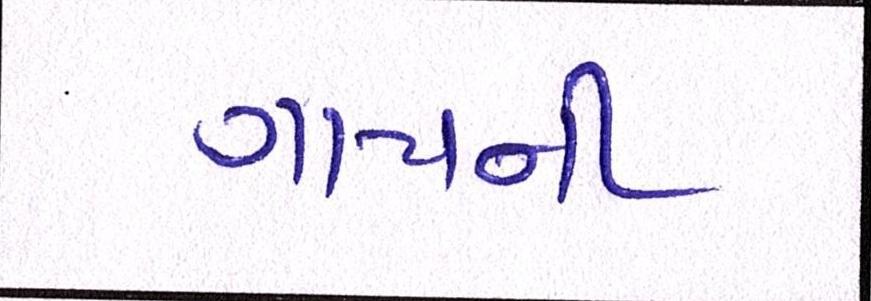 ગાયની